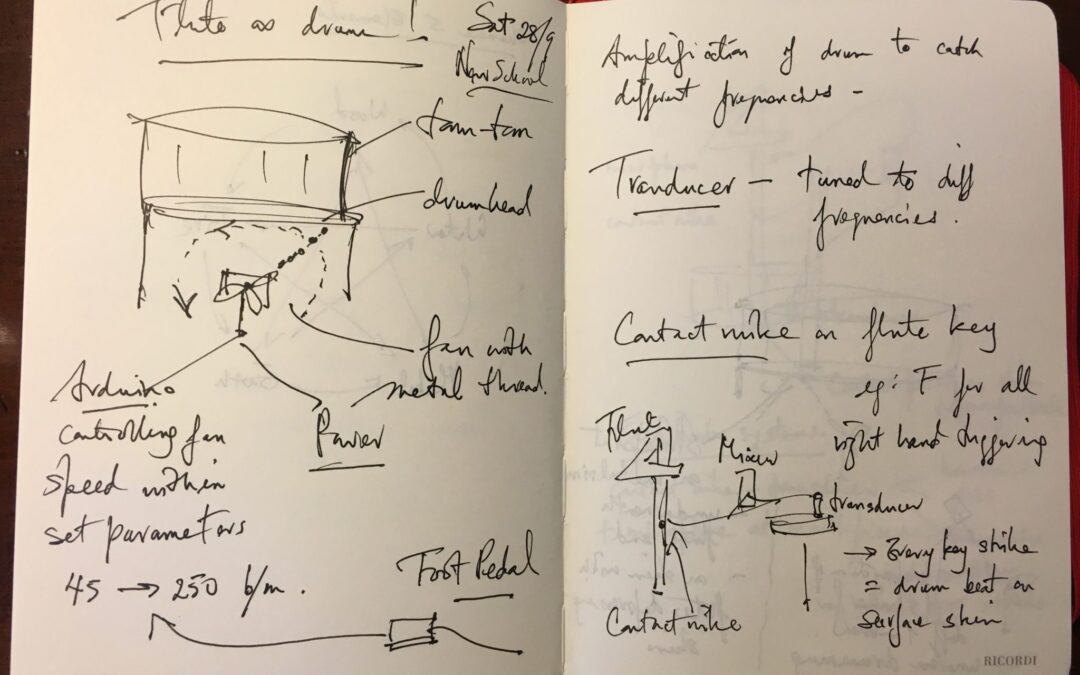 Flute as drum!
Sat 28/9
New School
tam-tam
drumhead
fan with
metal thread.
Arduino
controlling fan
speed within
set parameters
45 → 250 b/m.
Power
Foot Pedal
Amplification of drum to catch
different frequencies -
Tranducer - tuned to diff
frequencies.
Contact mike on flute key
eg: F for all
right hand
Flute
Mixer
transducer
→ Every key strike
= drum beat on
surface skin
Contact mike
RICORDI